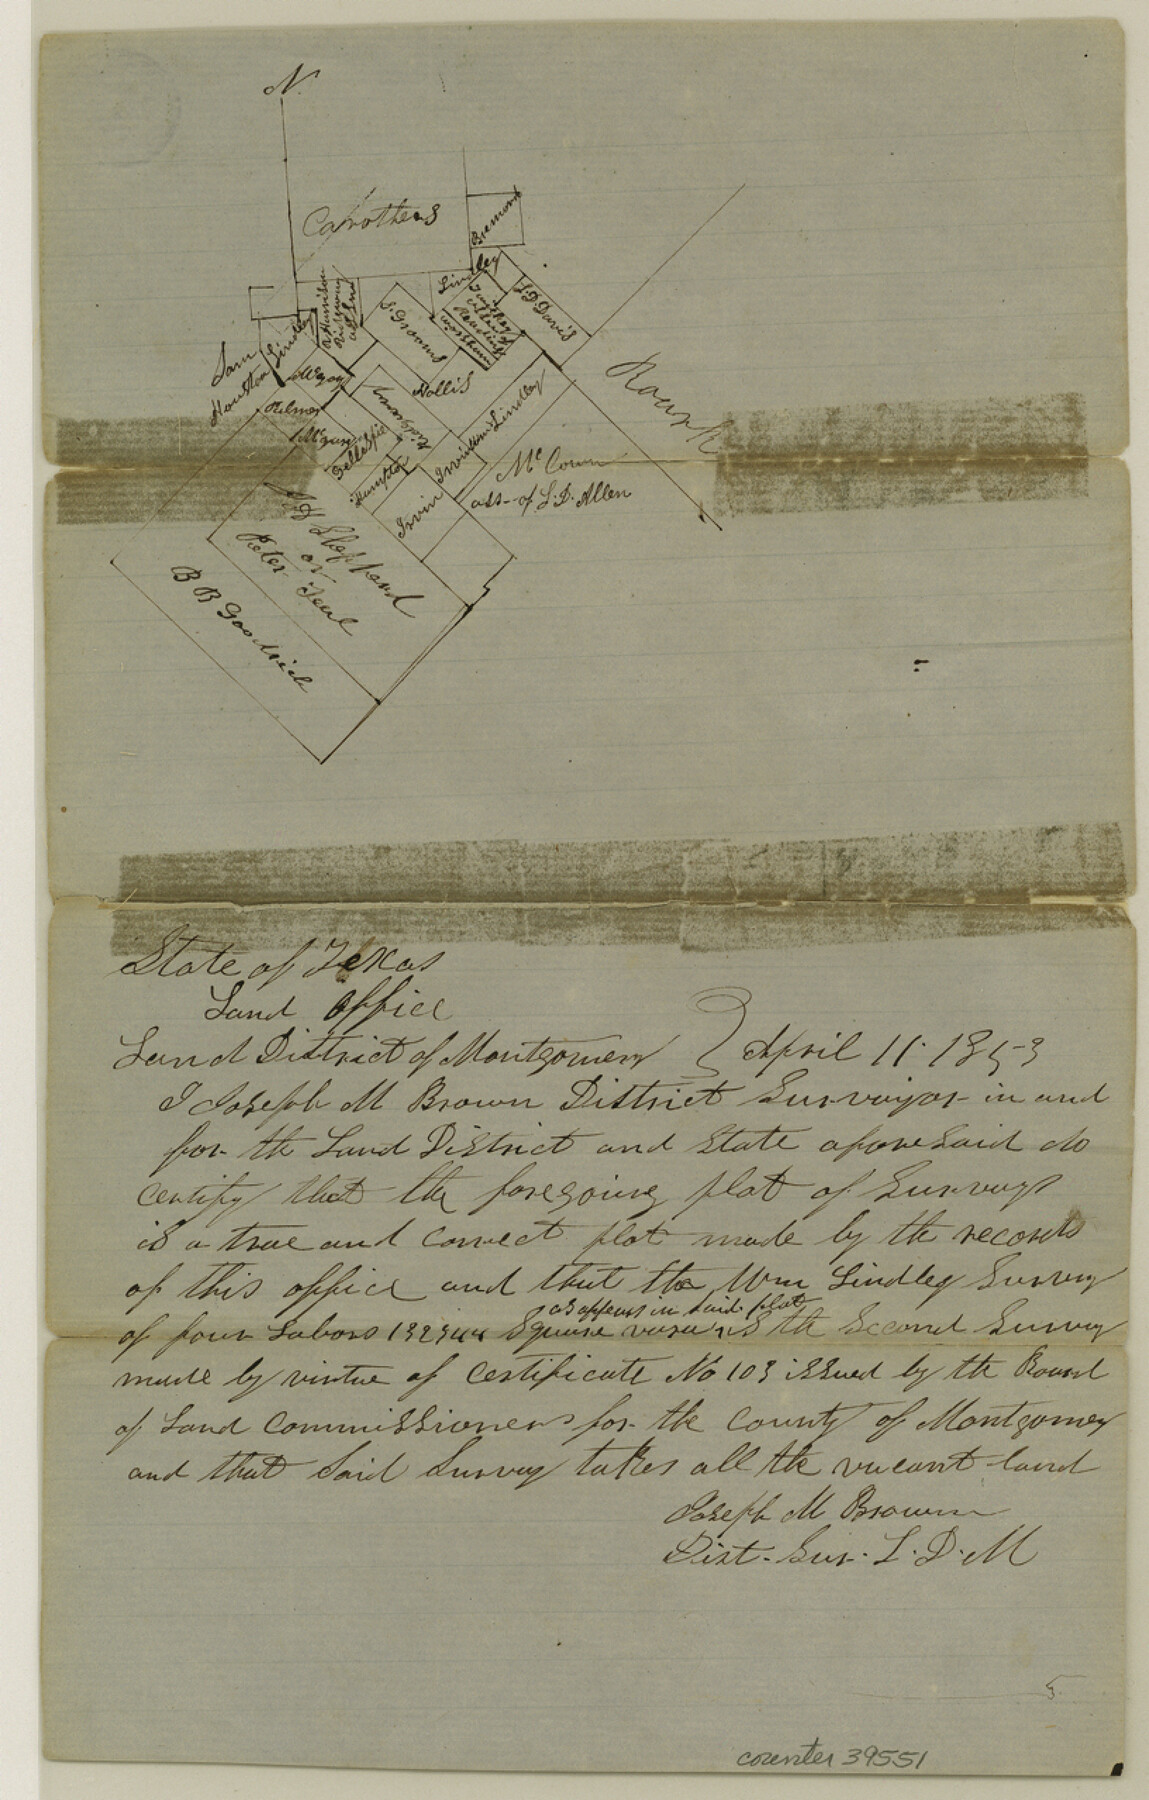 N.
Carothers
Bremond
Lindley
L.D. Davis
Harrison
S. Grooms
Sam
Houston
Lindley
McGary
Hollis
Ridgeway
Palmer
Gillespie
Hampton
Irvin
Irvin
Lindley
Roark
McCown
ass- of L.D. Allen
Sheppard
or
Peter Teal
B B Goodrich
State of Texas
Land Office
Land District of Montgomery } April 11. 1853
I Joseph M Brown District Surveyor in and
for the Land District and State aforesaid do
certify that the foregoing plat of Surveys
is a true and correct plat made by the records
of this office and that the Wm Lindley Survey
as appears in said plat
of four Labors 132344 Square varas is the Second Survey
made by virtue of Certificate No 103 issued by the Board
of Land Commissioners for the County of Montgomery
and that Said Survey takes all the vacant land
Joseph M Brown
Dist. Sur. L. D. M
5
counter 39551